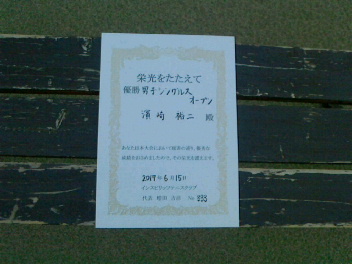 栄光をたたえて
優勝 男子シングルス
オープン
濱崎 裕二 殿
あなたは本大会において頭書の通り、優秀な
成績をおさめましたので、その栄光を讃えます。
2019年6月15日
代表
No 333